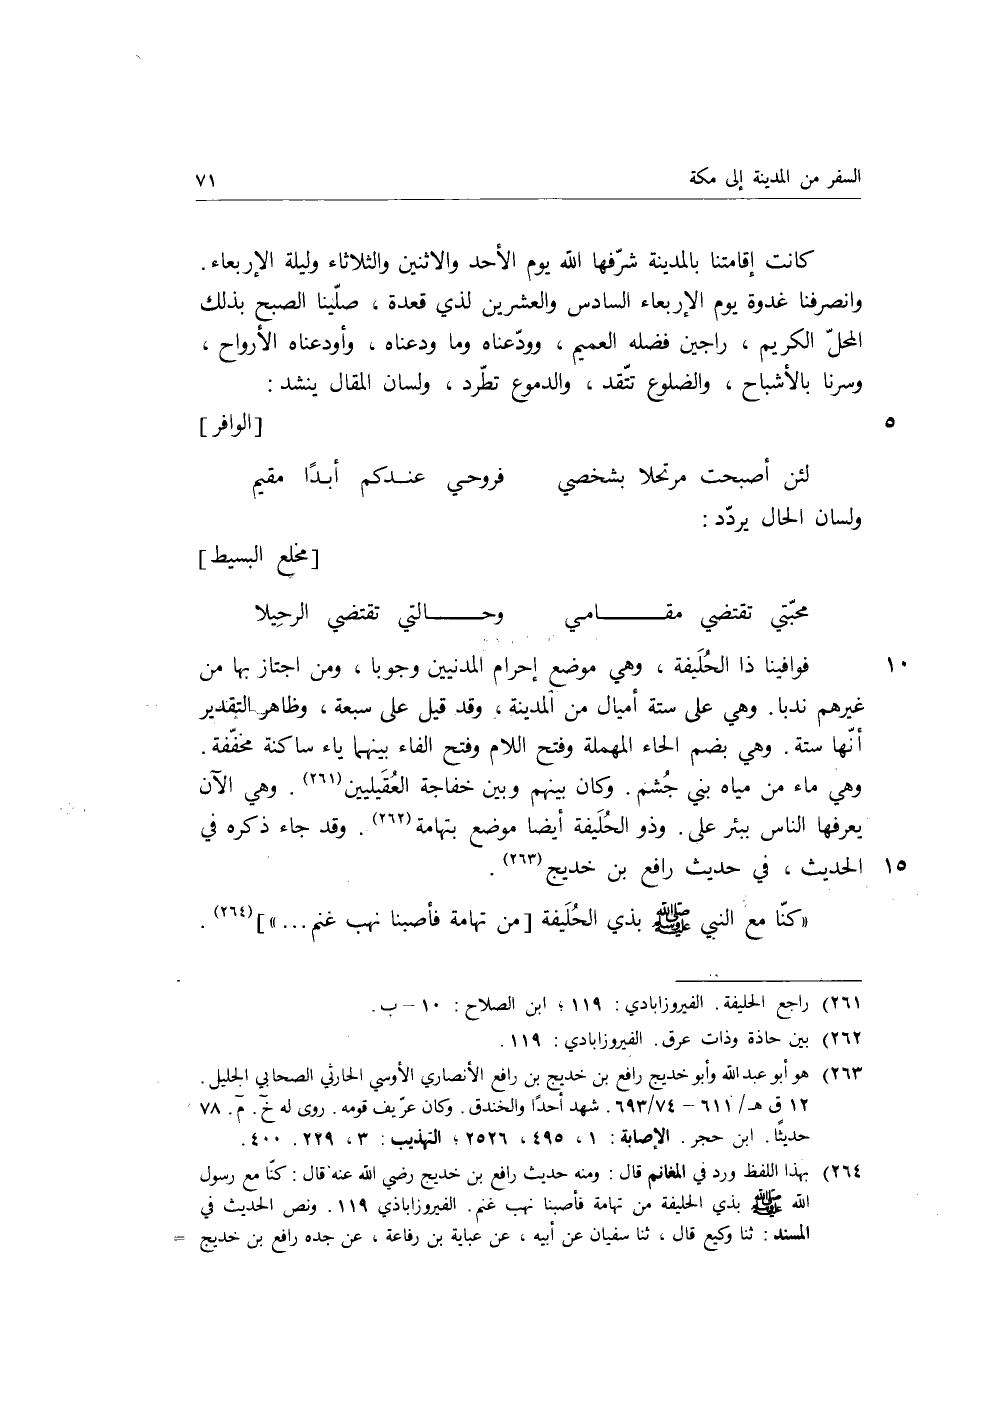 السفر من المدينة إلى مكة ٧١
كانت إقامتنا بالمدينة شرّفها الله يوم الأحد والاثنين والثلاثاء وليلة الإربعاء .
وانصرفنا غدوة يوم الإربعاء السادس والعشرين لذي قعدة ، صلّينا الصبح بذلك
المحلّ الكريم ، راجين فضله العميم ، وودّعناه وما ودعناه ، وأودعناه الأرواح ،
وسرنا بالأشباح ، والضلوع تتّقد ، والدموع تطّرد ، ولسان المقال ينشد :
[الوافر] ٥
لئن أصبحت مرتحلا بشخصي فروحي عندكم أبدًا مقيم
ولسان الحال يردّد :
[مخلع البسيط]
محبّتي تقتضي مقامي وحالتي تقتضي الرحيلا
فوافينا ذا الحُلَيفة ، وهي موضع إحرام المدنيين وجوبا ، ومن اجتاز بها من ١٠
غيرهم ندبا . وهي على ستة أميال من المدينة ، وقد قيل على سبعة ، وظاهر التقدير
أنّها ستة . وهي بضم الحاء المهملة وفتح اللام وفتح الفاء بينهما ياء ساكنة مخفّفة .
وهي ماء من مياه بني جُشم . وكان بينهم وبين خفاجة العُقَيليين(٢٦١) . وهي الآن
يعرفها الناس ببئر على . وذو الحُلَيفة أيضا موضع بتهامة(٢٦٢) . وقد جاء ذكره في
الحديث ، في حديث رافع بن خديج(٢٦٣) . ١٥
«كنّا مع النبي ﷺ بذي الحُلَيفة [من تهامة فأصبنا نهب غنم ...»](٢٦٤) .
٢٦١) راجع الحليفة . الفيروزابادي : ١١٩ ؛ ابن الصلاح : ١٠ – ب .
٢٦٢) بين حاذة وذات عرق . الفيروزابادي : ١١٩ .
٢٦٣) هو أبو عبد الله وأبو خديج رافع بن خديج بن رافع الأنصاري الأوسي الحارثي الصحابي الجليل .
١٢ ق هـ/ ٦١١ – ٦٩٣/٧٤ . شهد أحدًا والخندق . وكان عرّيف قومه . روى له خ . م . ٧٨
حديثًا . ابن حجر . الإصابة : ١ ، ٤٩٥ ، ٢٥٢٦ ؛ التهذيب : ٣ ، ٢٢٩ . ٤٠٠ .
٢٦٤) بهذا اللفظ ورد في المغانم قال : ومنه حديث رافع بن خديج رضي الله عنه قال : كنّا مع رسول
الله ﷺ بذي الحليفة من تهامة فأصبنا نهب غنم . الفيروزاباذي ١١٩ . ونص الحديث في
المسند : ثنا وكيع قال ، ثنا سفيان عن أبيه ، عن عباية بن رفاعة ، عن جده رافع بن خديج =